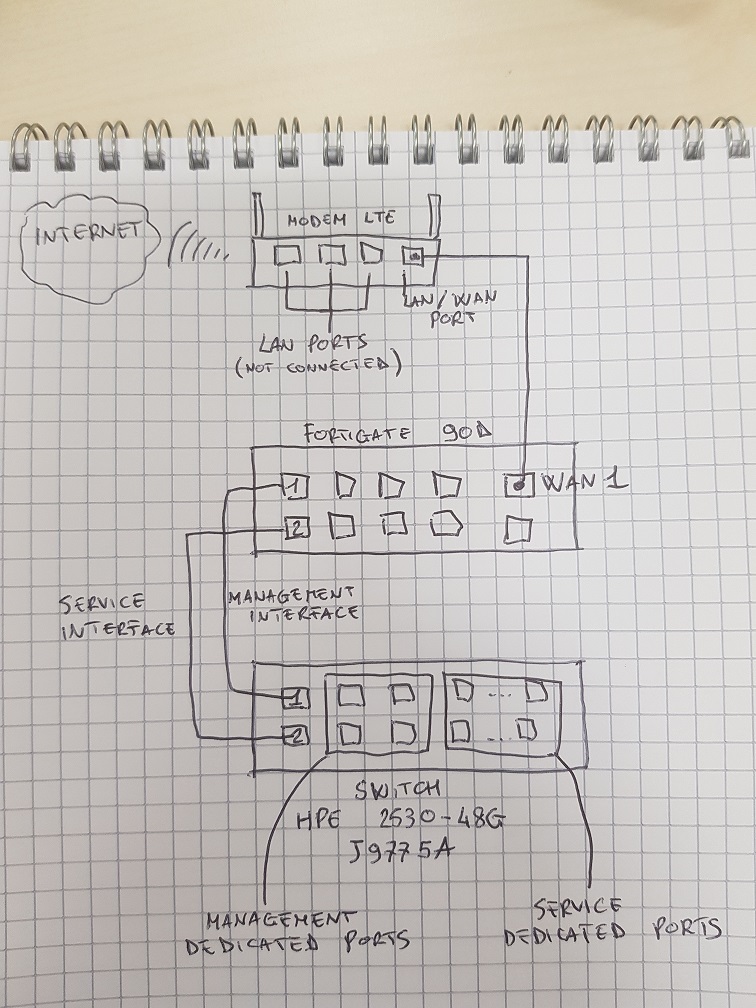 INTERNET
MODEM LTE
LAN/WAN
PORT
LAN PORTS
(NOT CONNECTED)
FORTIGATE 90D
1
WAN 1
2
SERVICE
INTERFACE
MANAGEMENT
INTERFACE
1
...
2
...
SWITCH
HPE 2530-48G
J9775A
MANAGEMENT
DEDICATED PORTS
SERVICE
DEDICATED PORTS